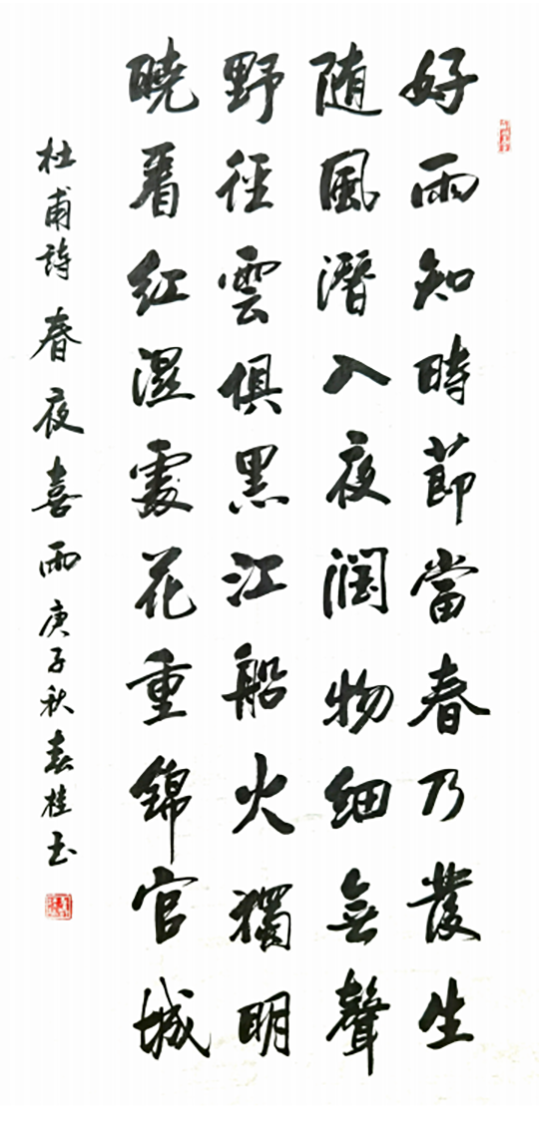 好雨知時節當春乃發生
随風潛入夜润物细無聲
野徑雲俱黑江船火獨明
曉看红濕處花重錦官城
杜甫詩春夜喜雨庚子秋春桂书